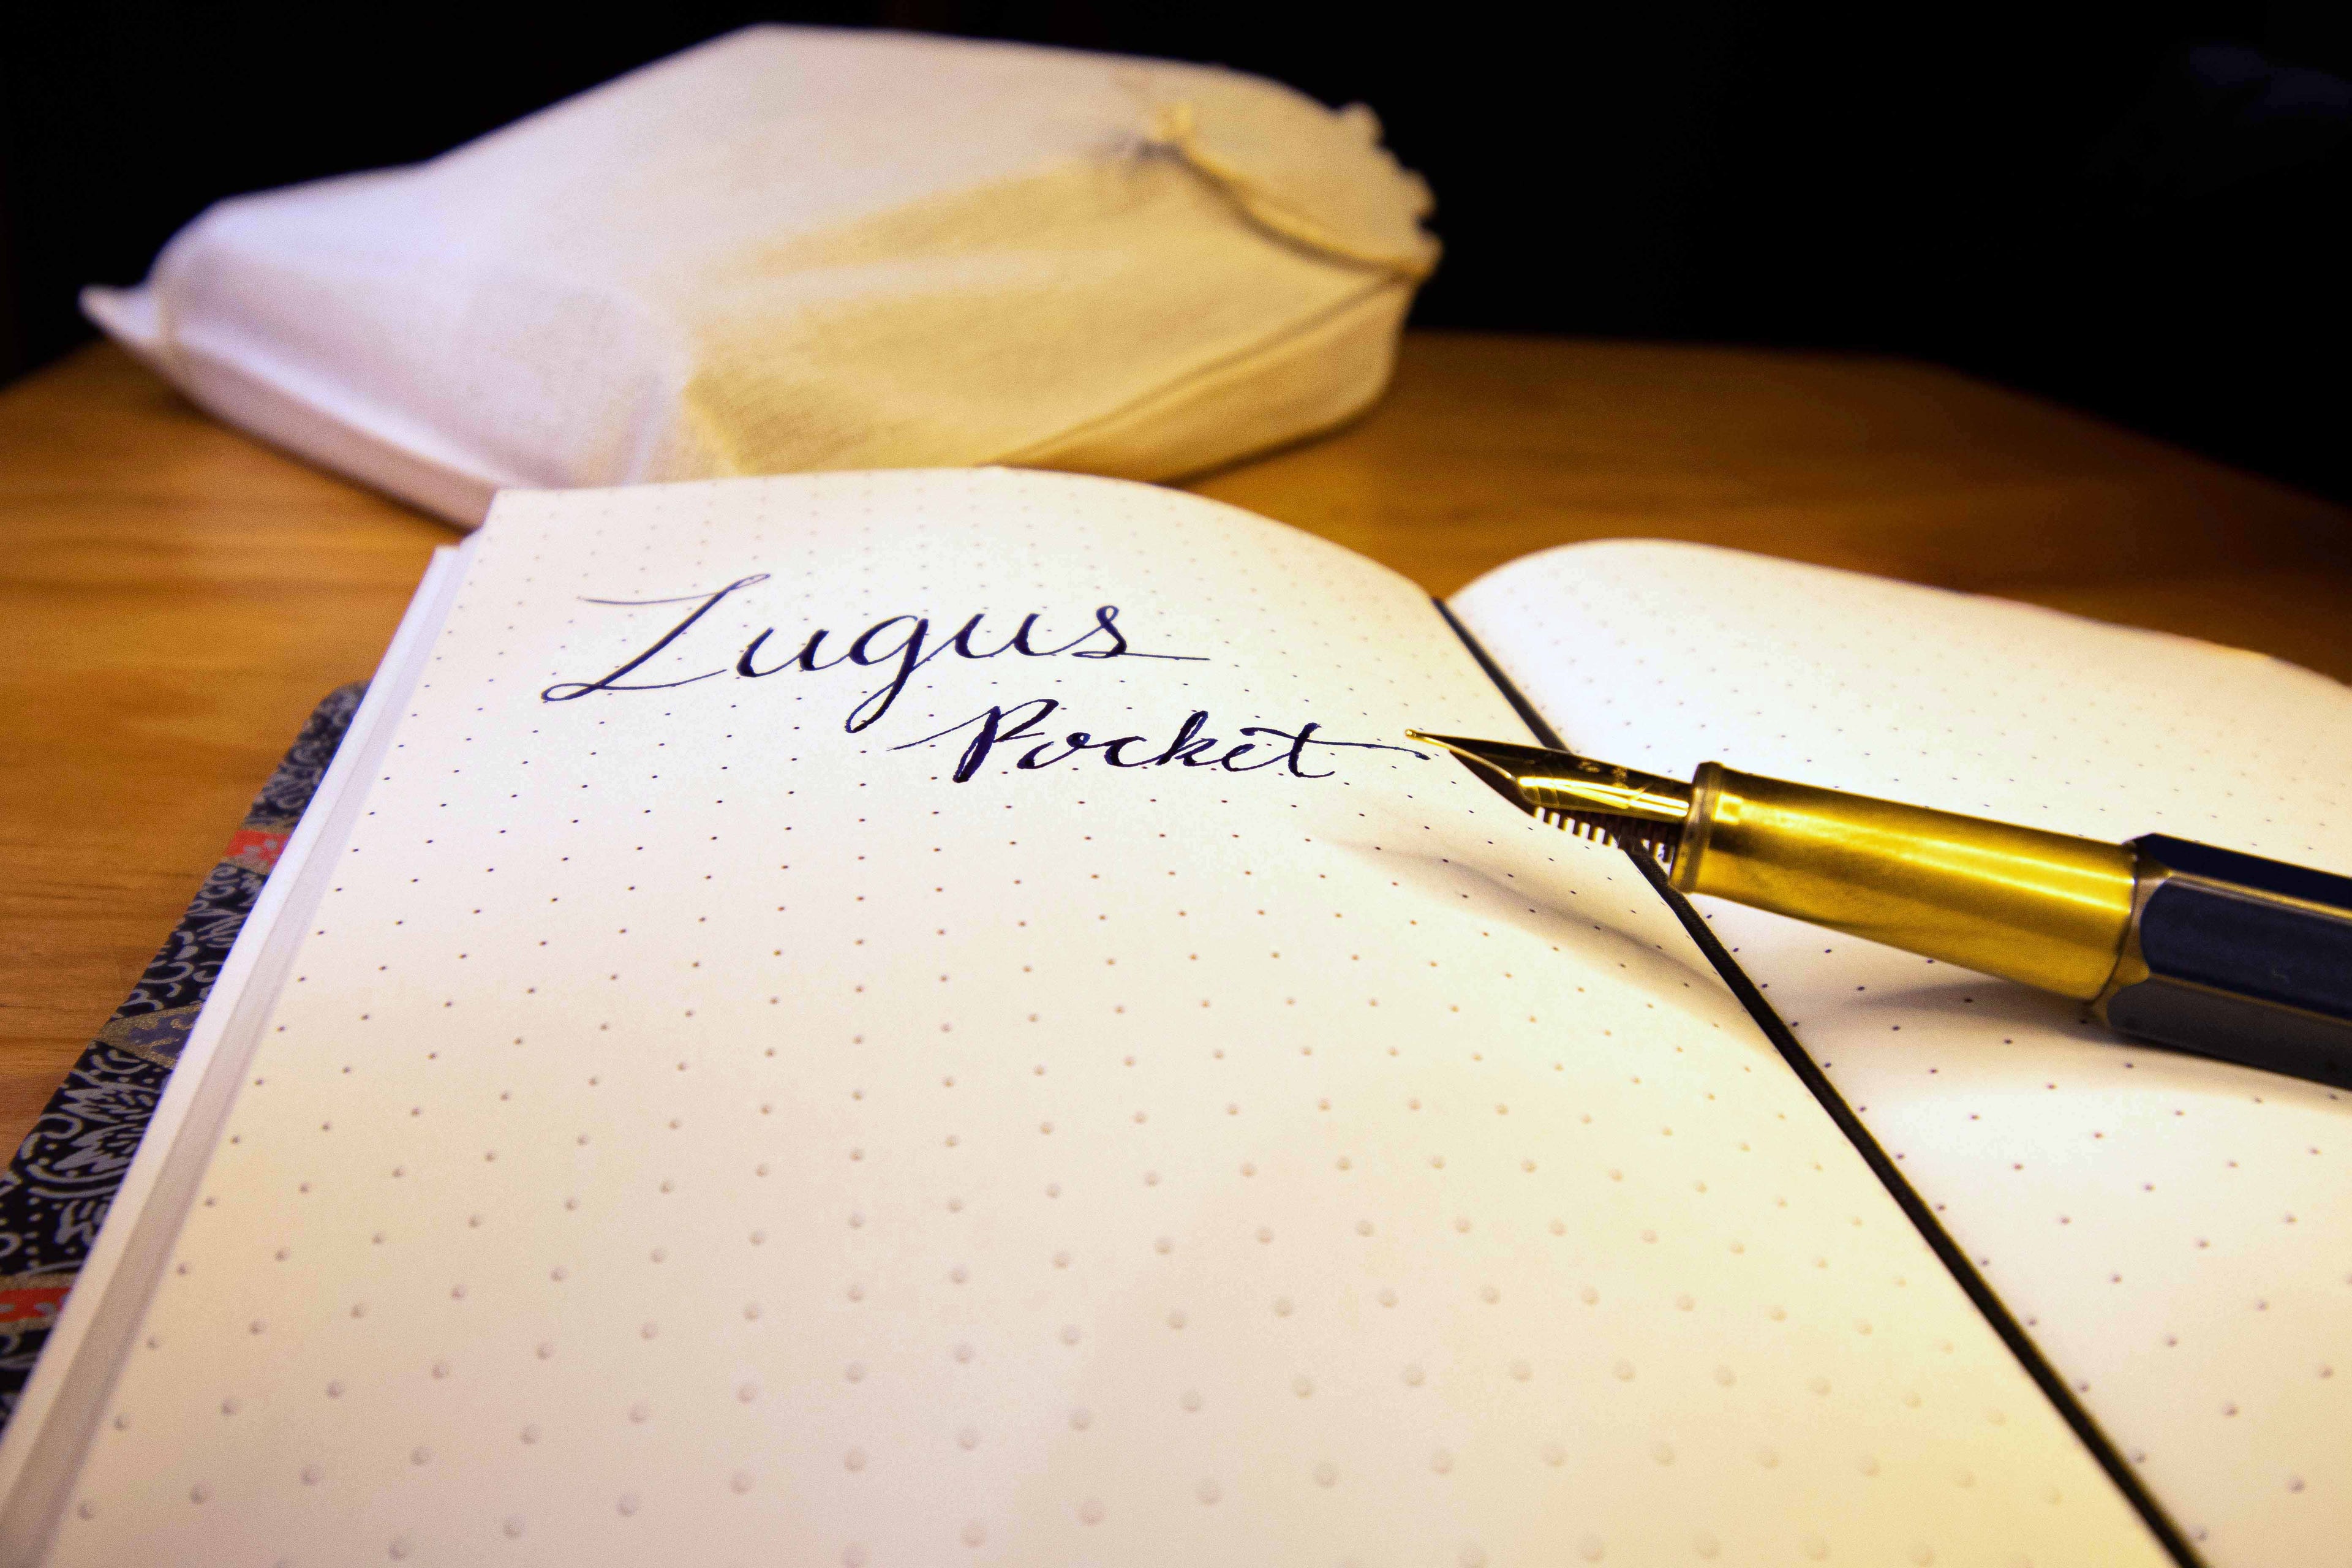 Lugus
Pocket